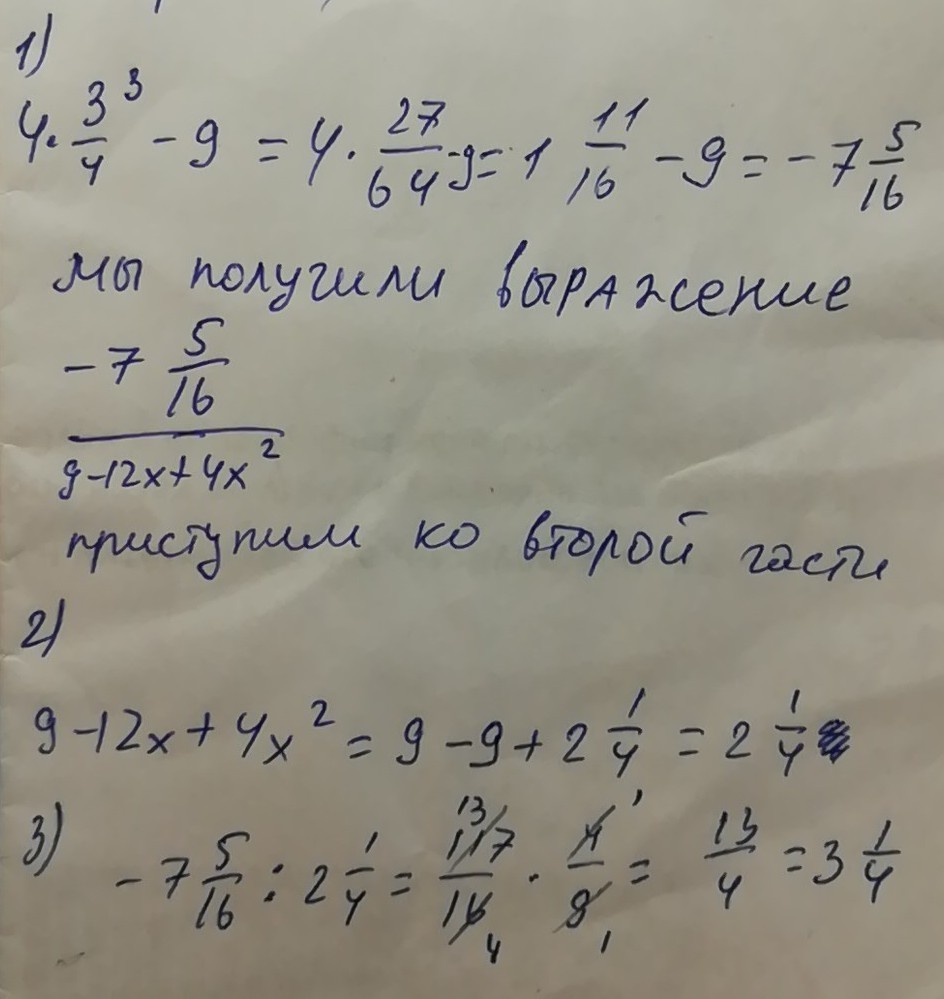 1)
4·3/4³ - 9 = 4·27/64-9= 1 11/16 - 9 = - 7 5/16
мы получили выражение
- 7 5/16
9-12x+4x²
приступим ко второй части
2)
9-12x+4x² = 9-9+2 1/4 = 2 1/4
3)
-7 5/16 : 2 1/4 = 117/16 · 4/9 = 13/4 = 3 1/4